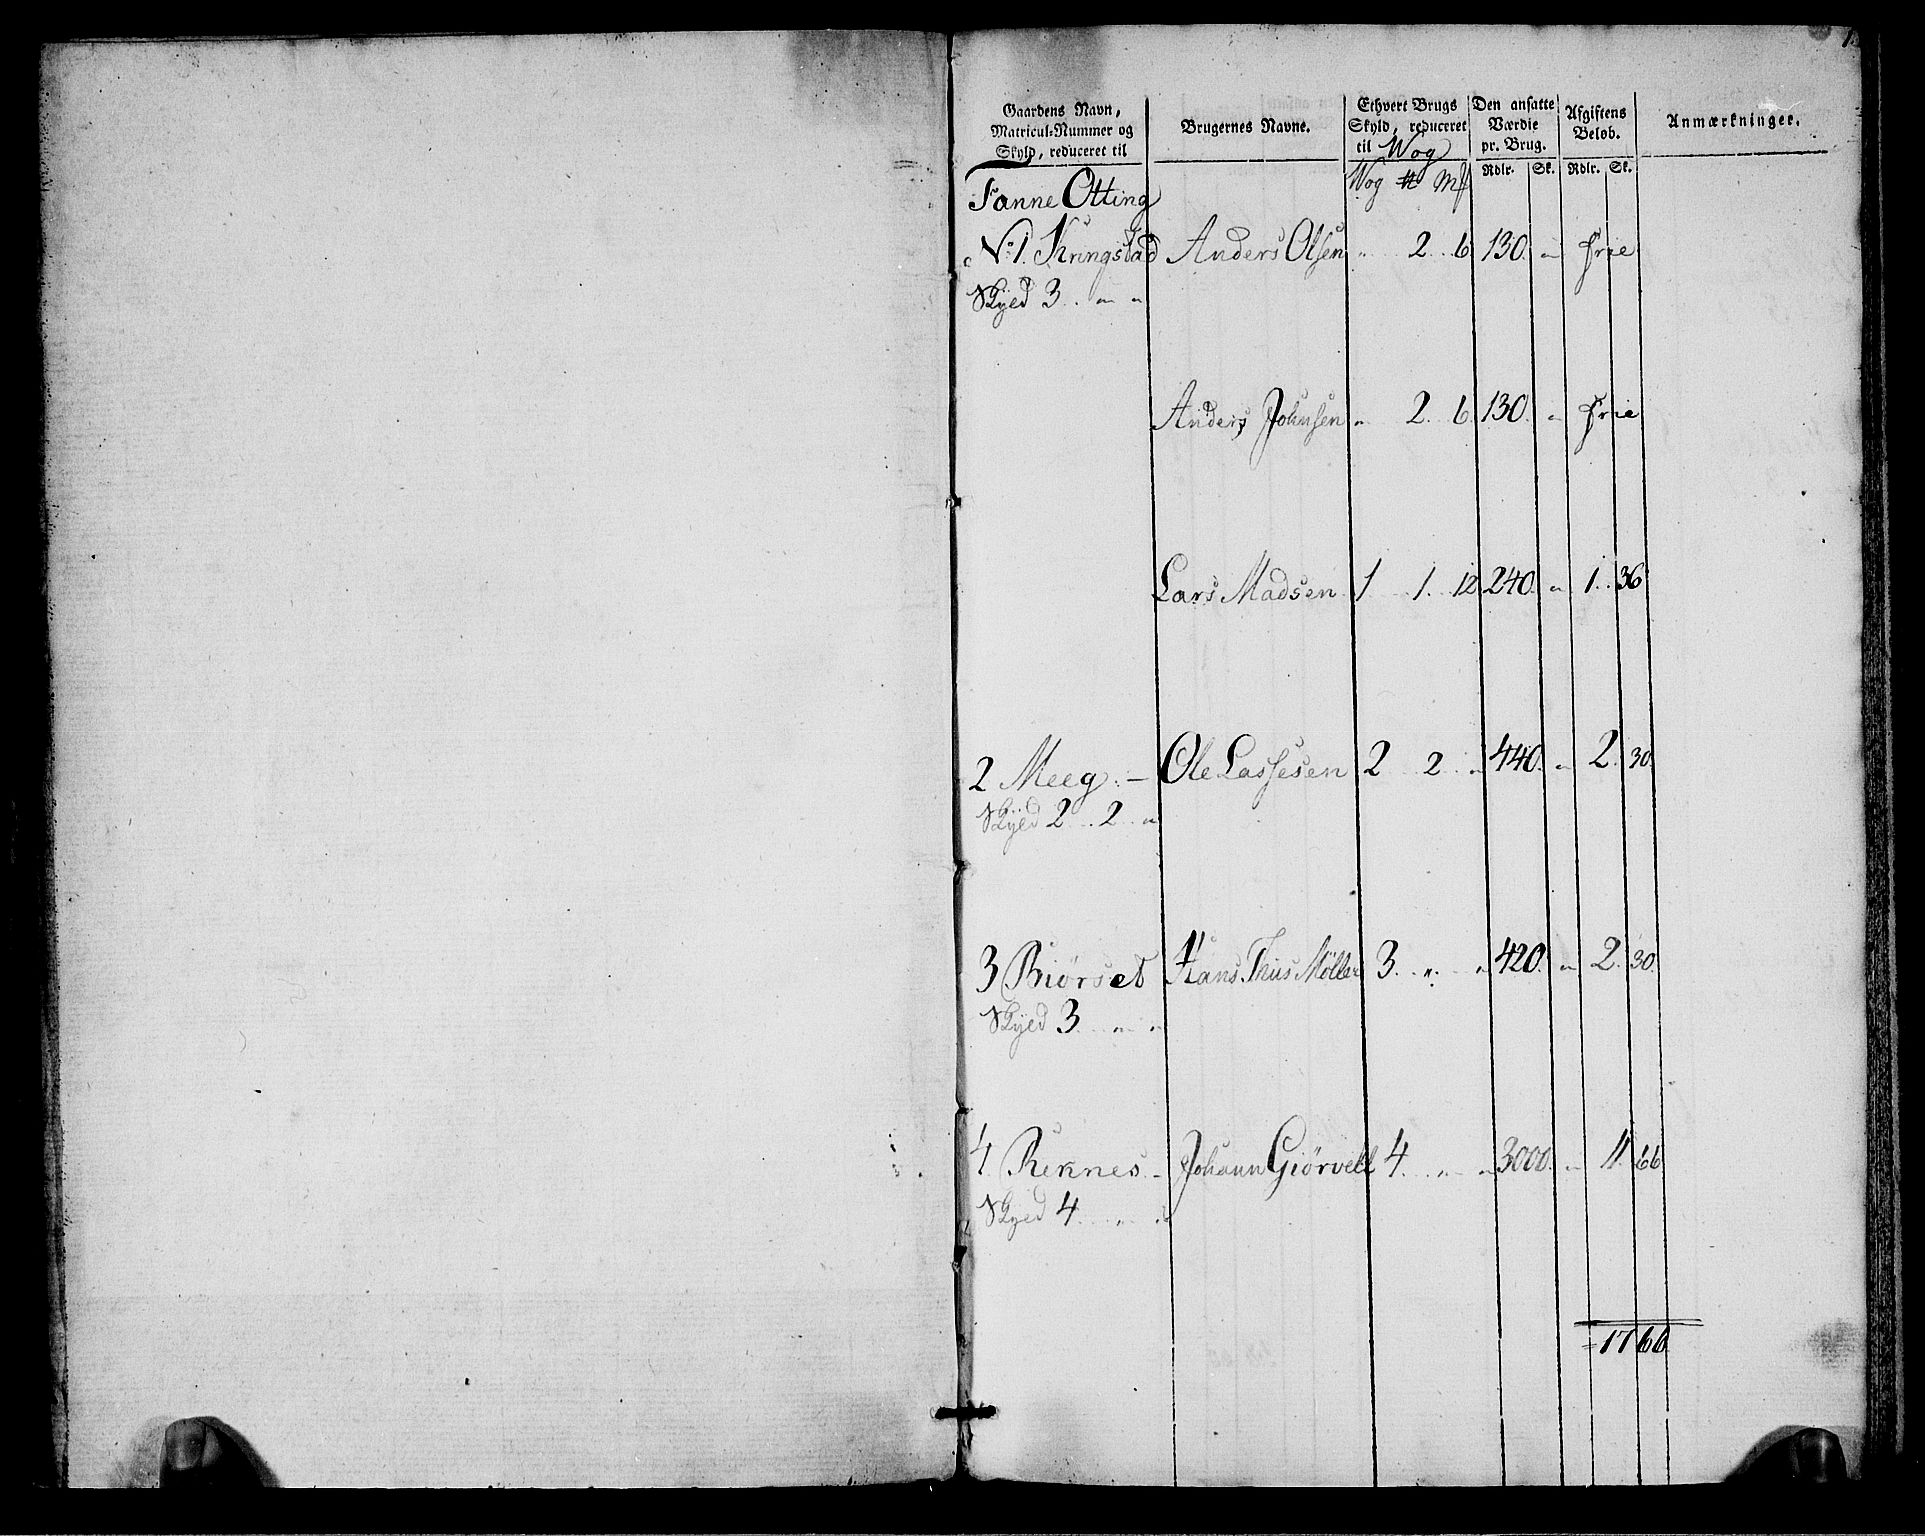 Gaardens Navn, Matricul-Nummer og Skyld, reduceret til
Brugernes Navne.
Ethvert Brugs Skyld, reduceret til Wog
Den ansatte Værdie pr. Brug.
Afgiftens Beløb.
Anmærkninger.
Wog ℔ Mk Rdlr. Sk. Rdlr. Sk.
Fanne Otting
No 1. Kringstad Anders Olsen " 2 6 130. " frie
Skyld 3 " "
Anders Johnsen " 2. 6 130. " frie
Lars Madsen 1 1. 12 240. " 1. 36
2 Meeg. – Ole Lassesen 2 2 " 440. " 2. 30
Skyld 2 2 "
3 Biörset Hans Thiis Møller 3. " " 420. " 2. 30.
Skyld 3 " "
4 Reknes – Johann Giörvell 4 " " 3000. " 11. 66
Skyld 4 " "
= 17 66